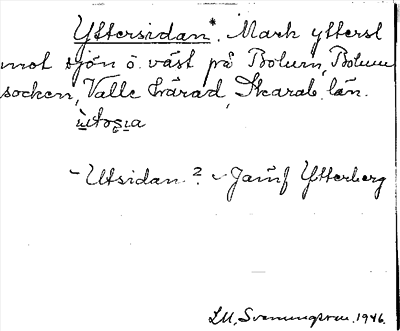 Yttersidan*. Mark ytterst
mot sjön ö. väst på Bolum, Bolum
socken, Valle härad, Skarab. län.
ùtosɩa
~ Utsidan? ~ Jämf Ytterberg
LM, Svenungsson. 1946.